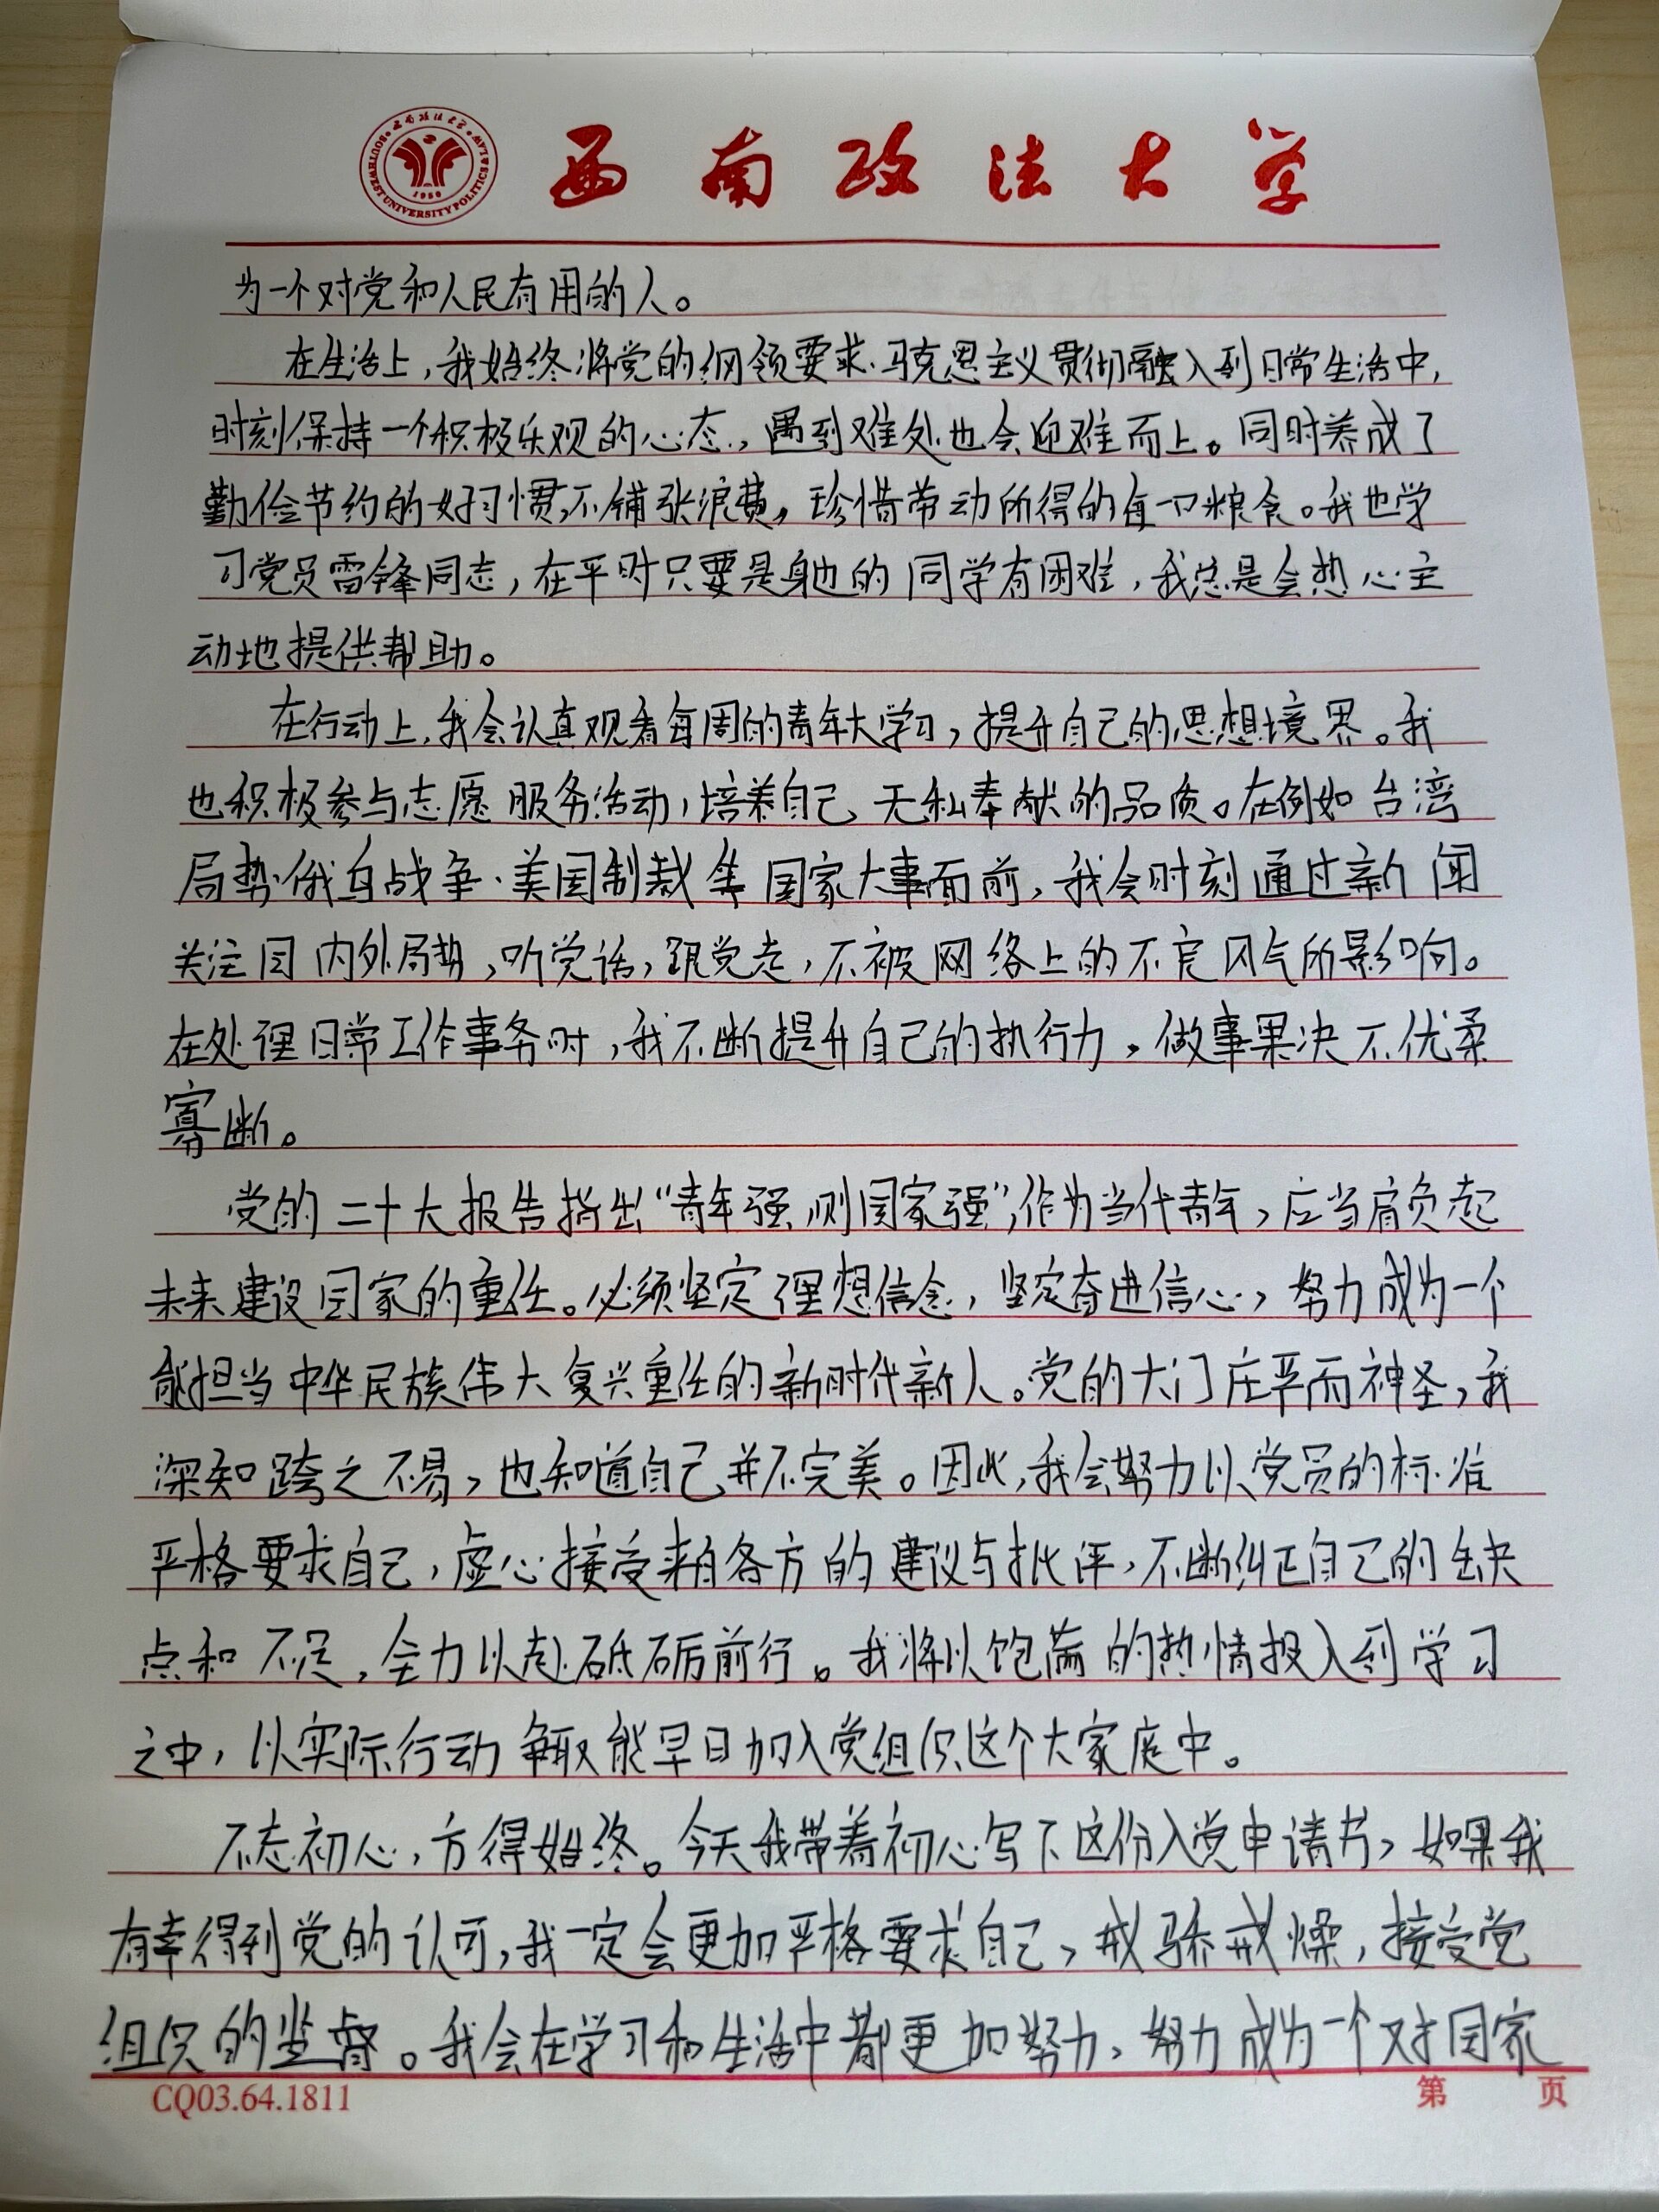 西南政法大学
西南政法大学 SOUTHWEST UNIVERSITY POLITICS & LAW 1950
为一个对党和人民有用的人。
在生活上,我始终将党的纲领要求、马克思主义贯彻融入到日常生活中,
时刻保持一个积极乐观的心态,遇到难处也会迎难而上。同时养成了
勤俭节约的好习惯,不铺张浪费,珍惜劳动所得的每一口粮食。我也学
习党员雷锋同志,在平时只要是身边的同学有困难,我总是会热心主
动地提供帮助。
在行动上,我会认真观看每周的青年大学习,提升自己的思想境界。我
也积极参与志愿服务活动,培养自己无私奉献的品质。在例如台湾
局势、俄乌战争、美国制裁等国家大事面前,我会时刻通过新闻
关注国内外局势,听党话,跟党走,不被网络上的不良风气所影响。
在处理日常工作事务时,我不断提升自己的执行力,做事果决不优柔
寡断。
党的二十大报告指出“青年强,则国家强”,作为当代青年,应当肩负起
未来建设国家的重任。必须坚定理想信念,坚定奋进信心,努力成为一个
能担当中华民族伟大复兴重任的新时代新人。党的大门庄严而神圣,我
深知跨之不易,也知道自己并不完美。因此,我会努力以党员的标准
严格要求自己,虚心接受来自各方的建议与批评,不断纠正自己的缺
点和不足,全力以赴砥砺前行。我将以饱满的热情投入到学习
之中,以实际行动争取能早日加入党组织这个大家庭中。
不忘初心,方得始终。今天我带着初心写下这份入党申请书,如果我
有幸得到党的认可,我一定会更加严格要求自己,戒骄戒燥,接受党
组织的监督。我会在学习和生活中都更加努力,努力成为一个对国家
CQ03.64.1811 第 页